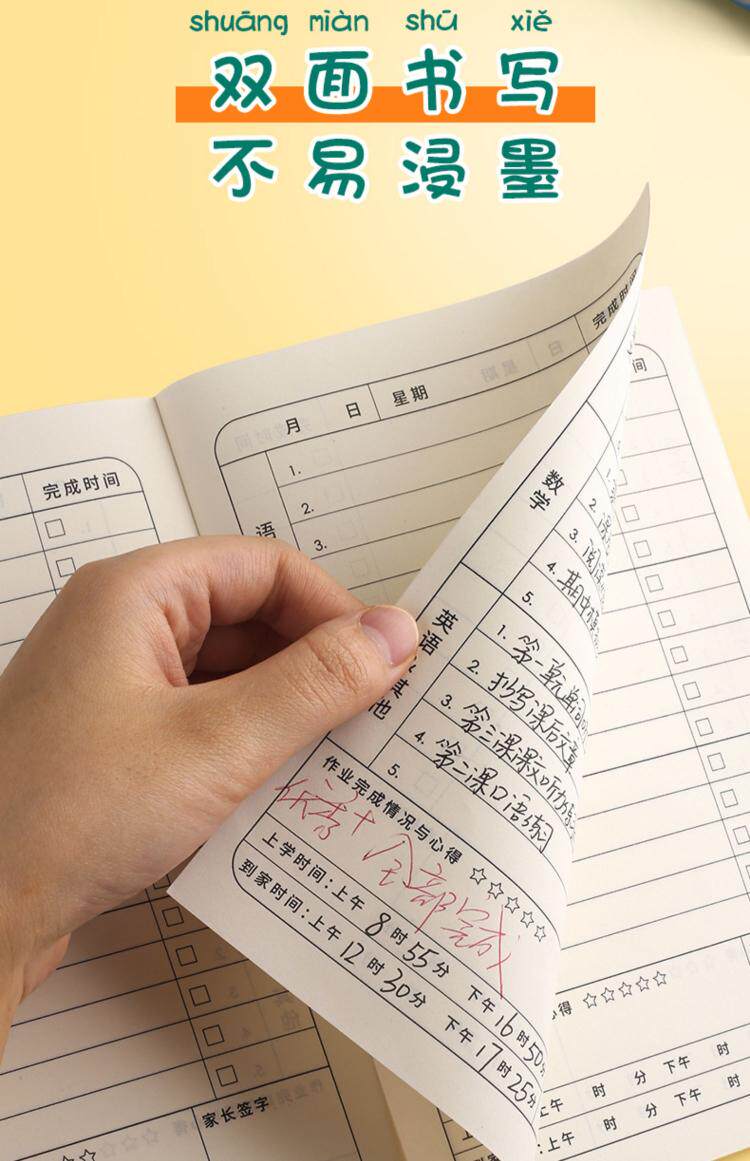 shuāng miàn shū xiě
双面书写
不易浸墨
完成时间
月 日 星期
完成时间
1.
2.
3.
语
间
完成时间
数学
2.
3.
4. 期中
5.
英语
其他
1. 第一单元单词
2. 抄写课后文章
3. 第三课课文听
4. 第二课口语练习
5.
作业完成情况与心得 ☆☆☆☆☆
全部完成
上学时间:上午 8 时 55 分 下午 16 时 50
到家时间:上午 12 时 30 分 下午 17 时 25 分
得 ☆☆☆☆☆
上午 时 分 下午 时
上午 时 分 下午 时
家长签字